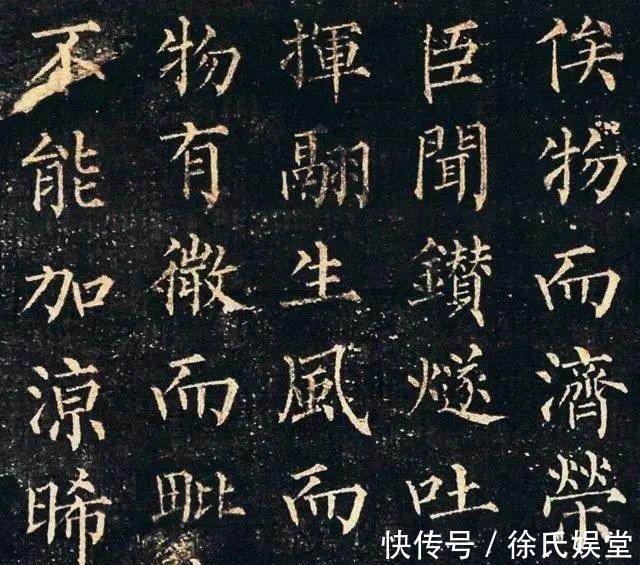 俟物而濟榮
臣聞鑚燧吐
揮翮生風而
物有微而毗
不能加涼晞
快传号 / 徐氏娱堂